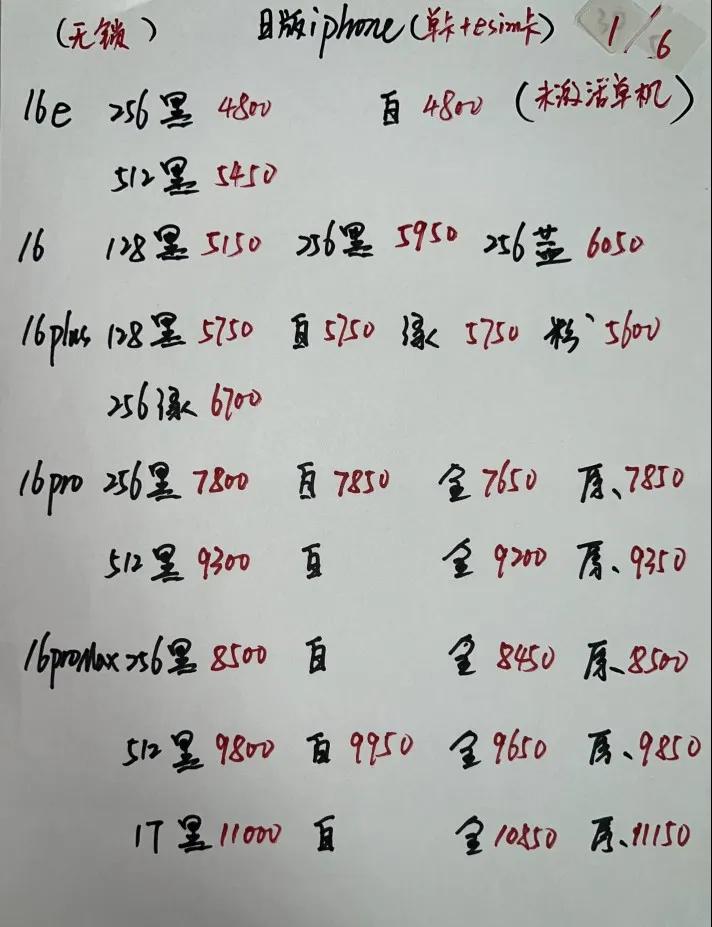 (无锁) 日版iphone(单卡+esim卡) 1/6
16e 256黑 4800 白 4800 (未激活单机)
512黑 5450
16 128黑 5150 256黑 5950 256蓝 6050
16plus 128黑 5750 白 5750 绿 5750 粉 5600
256绿 6700
16pro 256黑 7800 白 7850 金 7650 原、7850
512黑 9300 白 金 9200 原、9350
16promax 256黑 8500 白 金 8450 原、8500
512黑 9800 白 9950 金 9650 原、9850
1T 黑 11000 白 金 10850 原、11150